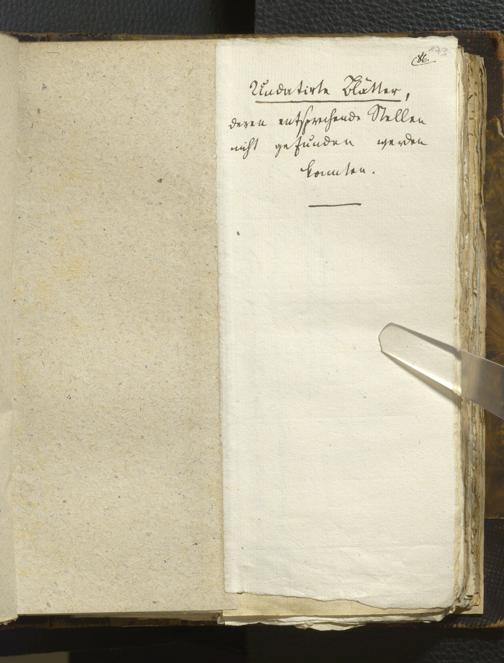 86.
Undatirte Blätter,
deren entsprechende Stellen
nicht gefunden werden
konnten.